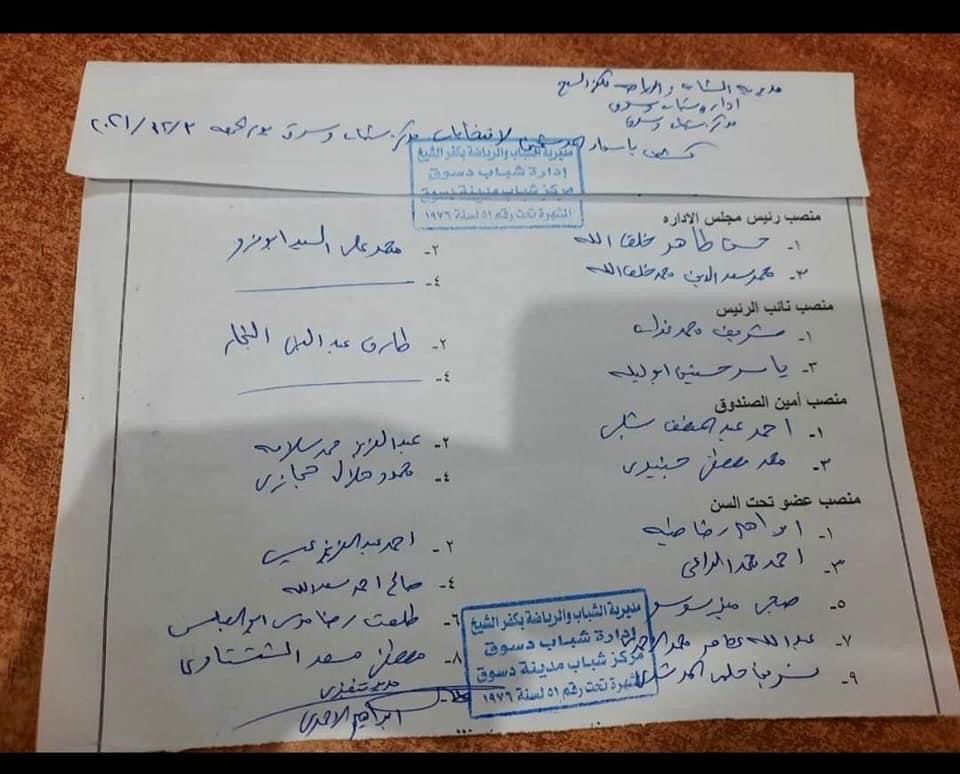 مديرية الشباب والرياضة بكفر الشيخ
ادارة شباب دسوق
مركز شباب دسوق
كشف باسماء المرشحين لانتخابات مركز شباب دسوق يوم الجمعه ٢٠٢١/١٢/٣
مديرية الشباب والرياضة بكفر الشيخ
إدارة شباب دسوق
مركز شباب مدينة دسوق
المشهرة تحت رقم ٥١ لسنة ١٩٧٦
منصب رئيس مجلس الاداره
١- حسن طاهر خلف الله
٢- محمد على السيد ابو
٣- محمد سعد الدين محمد خلف الله
٤-
منصب نائب الرئيس
١- شريف محمد
٢- طارق عبد النجار
٣- ياسر حسنين ابو ليله
٤-
منصب أمين الصندوق
١- احمد عبد شلبى
٢- عبد العزيز محمد سلامه
٣- محمد مصطفى
٤- محمود جلال حجازى
منصب عضو تحت السن
١- ابراهيم رضا
٢- احمد عبد العزيز
٣- احمد محمد الراعى
٤- صالح احمد سعد الله
٥- صبحى بسيونى
٦- طلعت رضا ابو العباس
٧- عبد الله محمد
٨- مصطفى مسعد الششتاوى
٩- حلمى احمد
مديرية الشباب والرياضة بكفر الشيخ
إدارة شباب دسوق
مركز شباب مدينة دسوق
المشهرة تحت رقم ٥١ لسنة ١٩٧٦
مدير تنفيذى
ابراهيم